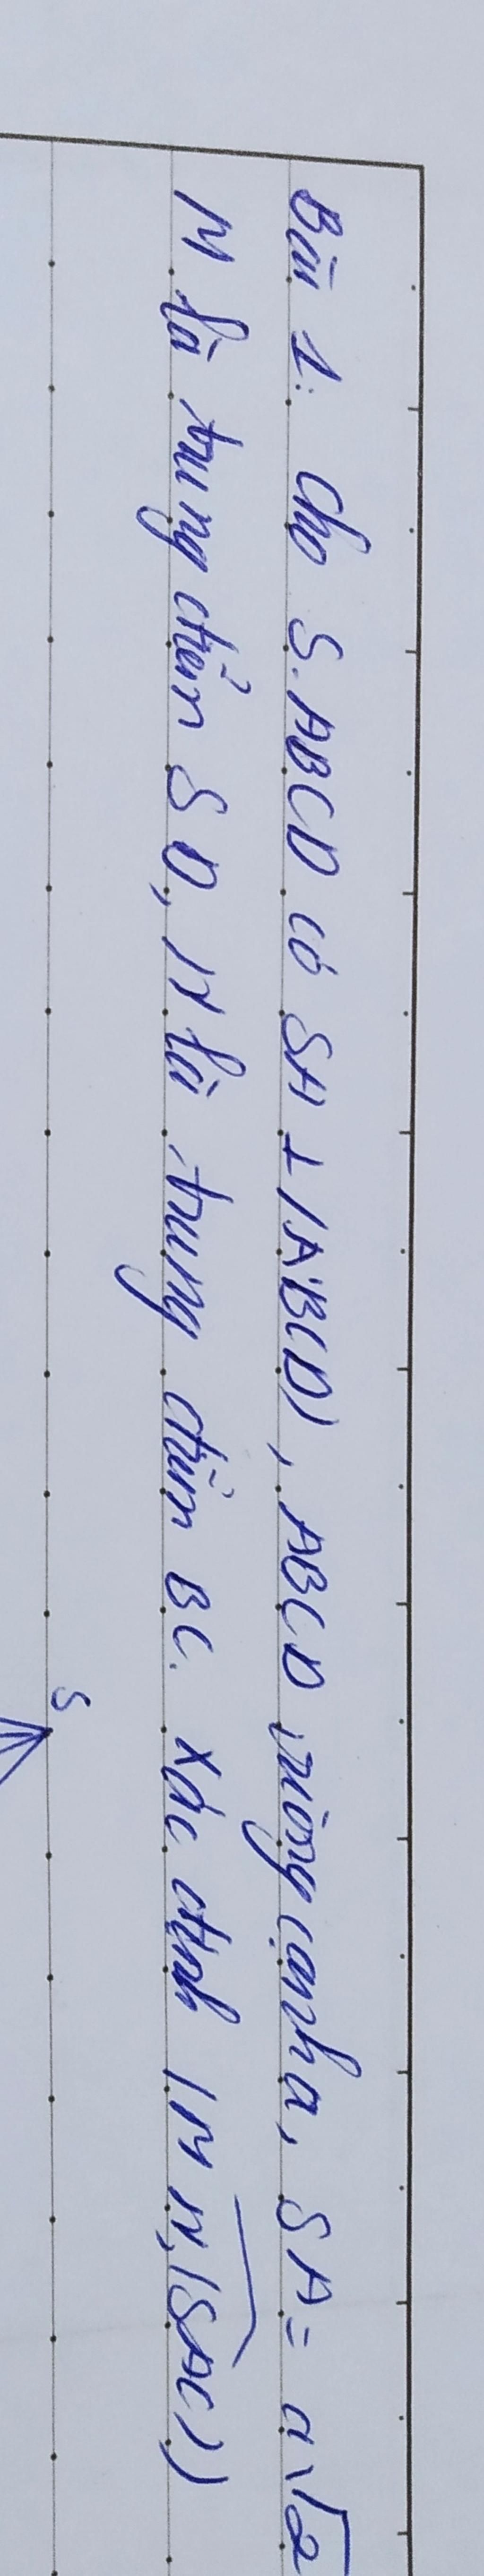 Bài 1: Cho S.ABCD có SA ⊥ (ABCD), ABCD vuông cạnh a, SA = a√2
M là trung điểm SD, N là trung điểm BC. Xác định (MN,(SAC))
S